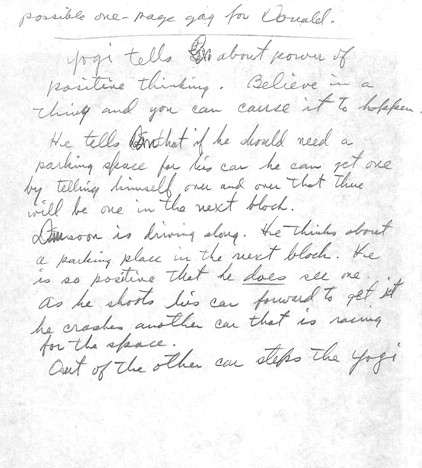 possible one-page gag for Donald.
Yogi tells Dn about power of
positive thinking. Believe in a
thing and you can cause it to happen.
He tells Dn that if he should need a
parking space for his car he can get one
by telling himself over and over that there
will be one in the next block.
Dn soon is driving along. He thinks about
a parking place in the next block. He
is so positive that he does see one.
As he shoots his car forward to get it
he crashes another car that is racing
for the space.
Out of the other car steps the yogi